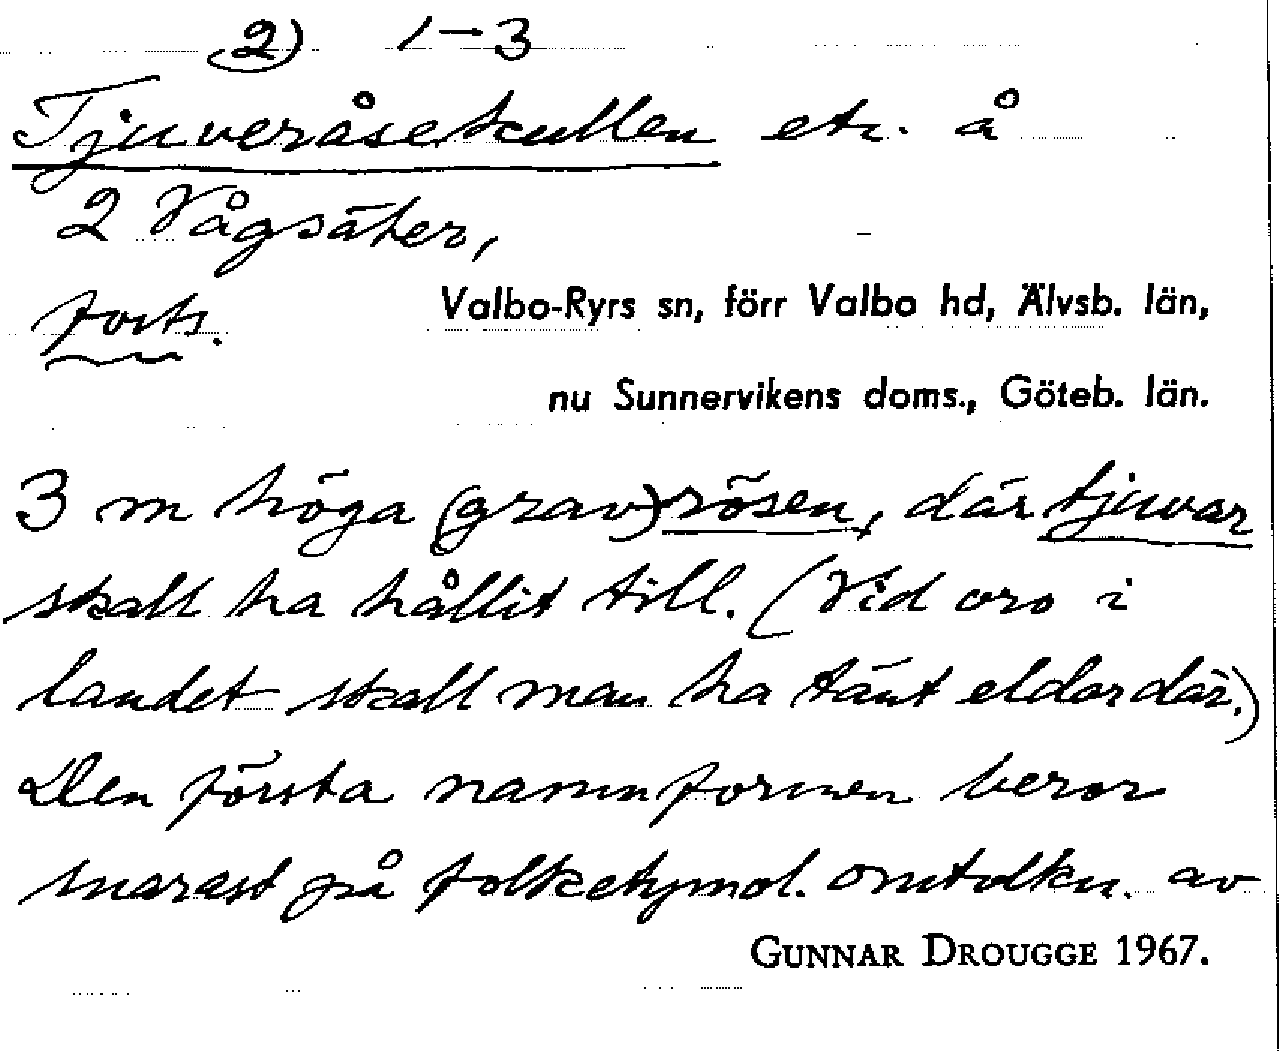 2) 1–3
Tjuveråsekullen etc. å
2 Vågsäter,
forts.
Valbo-Ryrs sn, förr Valbo hd, Älvsb. län,
nu Sunnervikens doms., Göteb. län.
3 m höga (grav)rösen, där tjuvar
skall ha hållit till. (Vid oro i
landet skall man ha tänt eldar där.)
Den första namnformen beror
snarast på folketymol. omtolkn. av
GUNNAR DROUGGE 1967.